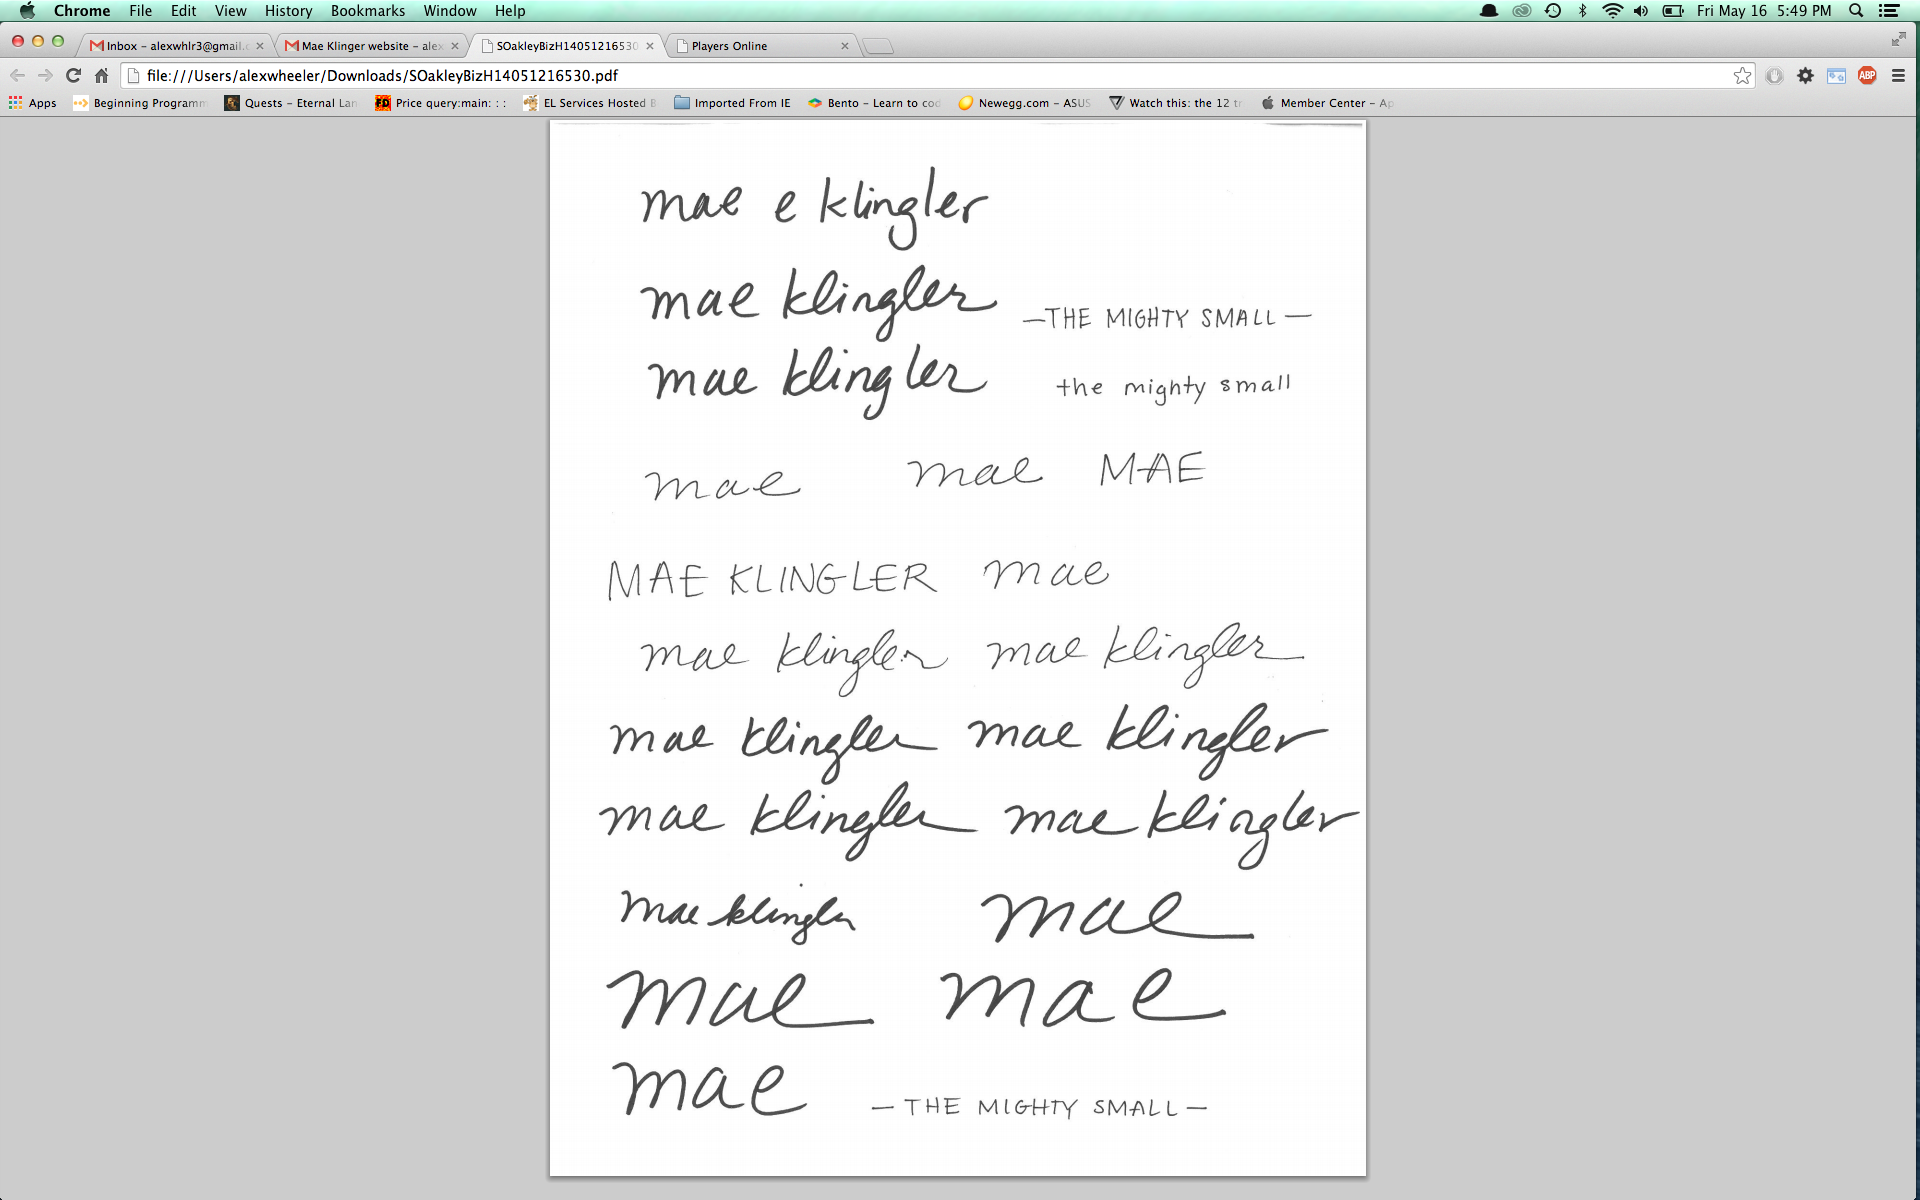 Chrome File Edit View History Bookmarks Window Help Fri May 16 5:49 PM
Inbox - alexwhlr3@gmail.c Mae Klinger website - alex SOakleyBizH14051216530 Players Online
file:///Users/alexwheeler/Downloads/SOakleyBizH14051216530.pdf ABP
Apps Beginning Programm Quests - Eternal Lan Price query:main: : : EL Services Hosted B Imported From IE Bento - Learn to cod Newegg.com - ASUS Watch this: the 12 tr Member Center - Ap
mae e klingler
mae klingler
—THE MIGHTY SMALL—
mae klingler
the mighty small
mae mae MAE
MAE KLINGLER mae
mae klingler mae klingler
mae klingler mae klingler
mae klingler mae klingler
mae klingler mae
mae mae
mae — THE MIGHTY SMALL —